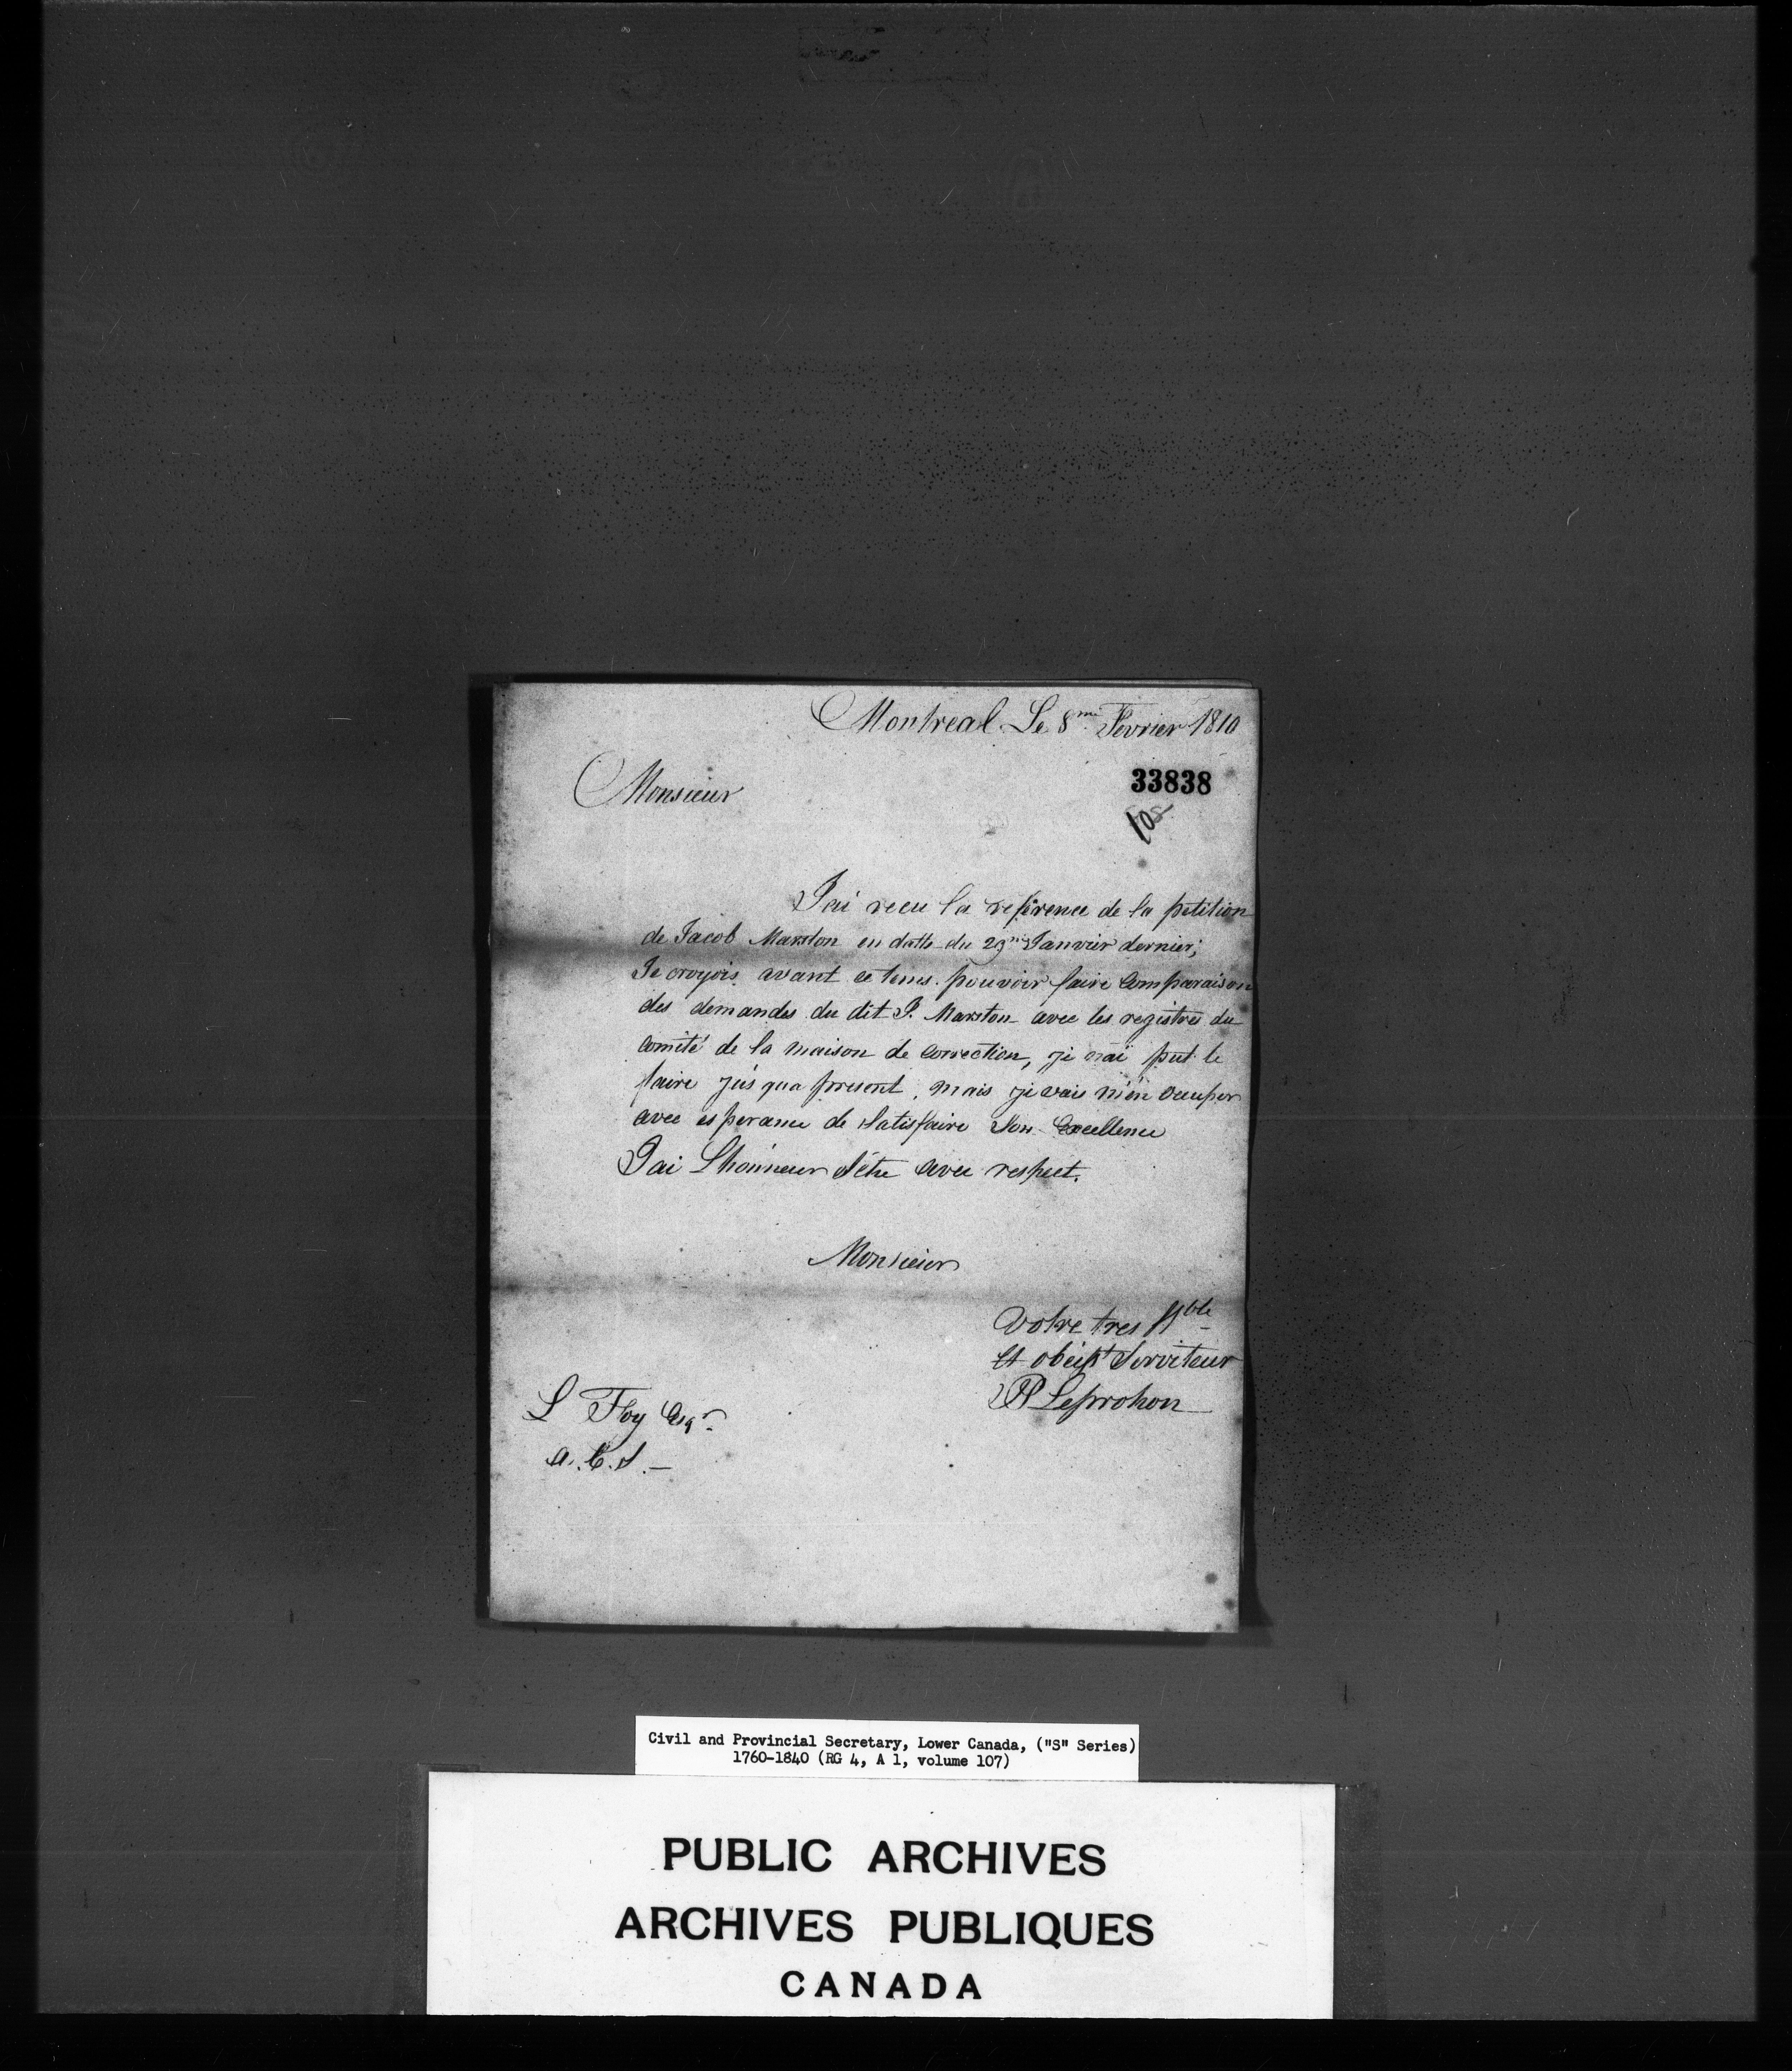 Montreal Le 8me Fevrier 1810
33838
Monsieur
108
J'ai recu la reference de la petition
de Jacob Marston en datte du 29me Janvier dernier;
Je croyois avant ce tems pouvoir faire Comparaison
des demandes du dit J. Marston avec les registres du
comité de la maison de Correction, je n'ai put le
faire jus'qua present, mais je vais m'en occuper
avec esperance de satisfaire Son Excellence
J'ai L'honneur d'être avec respect.
Monsieur
Votre tres Hble
et obeisst Serviteur
Leprohon
L Foy Esqr
A.C.S.—
Civil and Provincial Secretary, Lower Canada, ("S" Series)
1760-1840 (RG 4, A 1, volume 107)
PUBLIC ARCHIVES
ARCHIVES PUBLIQUES
CANADA